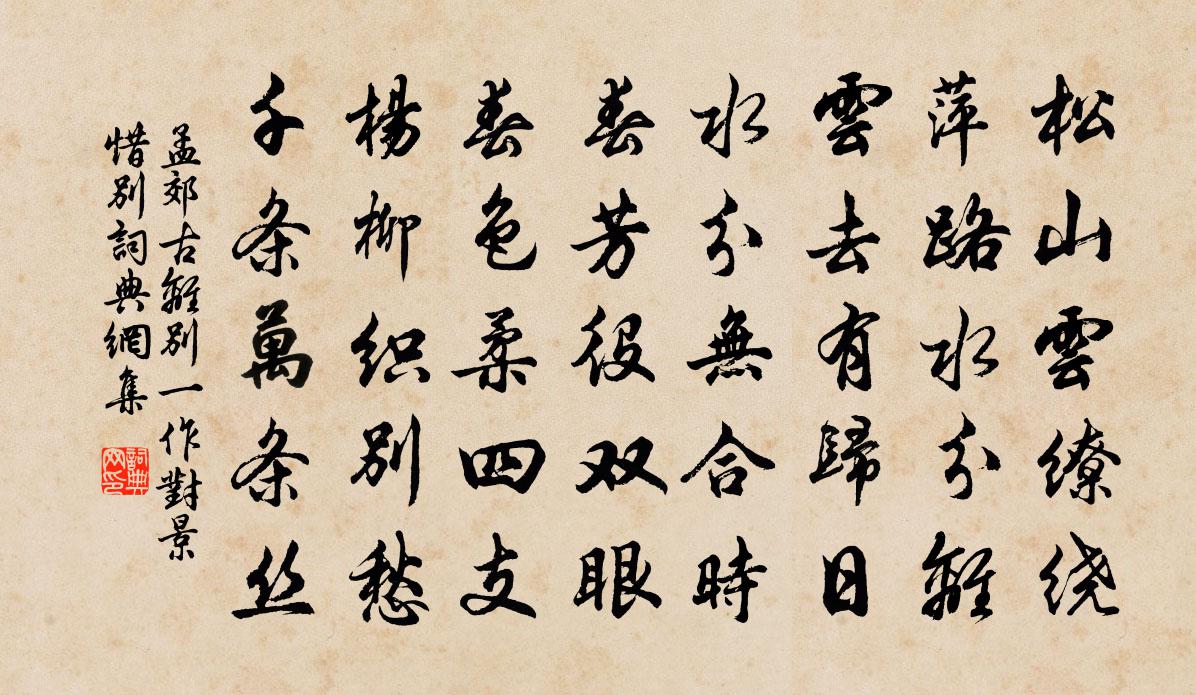 松山雲缭绕
萍路水分離
雲去有歸日
水分無合時
春芳役双眼
春色柔四支
楊柳织別愁
千条萬条丝
孟郊古離別一作對景
惜別詞典網集
詞典
网印